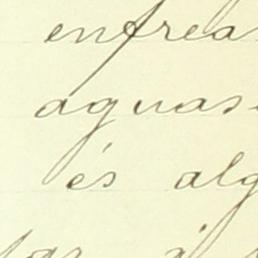 enfrea
aguas
és alg